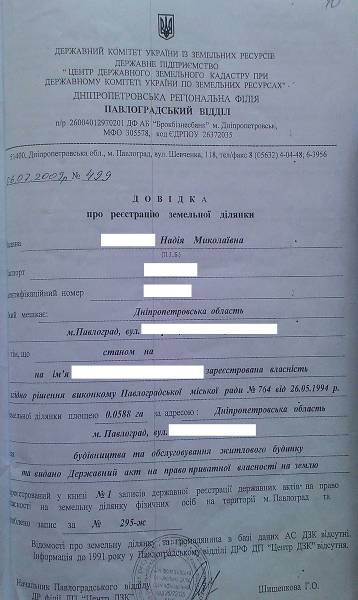 ДЕРЖАВНИЙ КОМІТЕТ УКРАЇНИ ІЗ ЗЕМЕЛЬНИХ РЕСУРСІВ
ДЕРЖАВНЕ ПІДПРИЄМСТВО
"ЦЕНТР ДЕРЖАВНОГО ЗЕМЕЛЬНОГО КАДАСТРУ ПРИ
ДЕРЖАВНОМУ КОМІТЕТІ УКРАЇНИ ПО ЗЕМЕЛЬНИХ РЕСУРСАХ"
ДНІПРОПЕТРОВСЬКА РЕГІОНАЛЬНА ФІЛІЯ
ПАВЛОГРАДСЬКИЙ ВІДДІЛ
п/р 26004012970201 ДФ АБ "Брокбізнесбанк" м. Дніпропетровськ,
МФО 305578, код ЄДРПОУ 26372035
51400, Дніпропетровська обл., м. Павлоград, вул. Шевченка, 118, тел/факс 8 (05632) 4-04-48; 6-1956
06.07.2009р № 499
ДОВІДКА
про реєстрацію земельної ділянки
Надія Миколаївна
(П.І.Б)
номер
мешкає: Дніпропетровська область
м.Павлоград, вул.
тім, що станом на
на ім'я зареєстрована власність
згідно рішення виконкому Павлоградської міської ради № 764 від 26.05.1994 р.
площею 0.0588 га за адресою: Дніпропетровська область
м. Павлоград, вул.
за
будівництва та обслуговування житлового будинку
та видано Державний акт на право приватної власності на землю
у книзі №1 записів державної реєстрації державних актів на право
власності на земельну ділянку фізичних осіб на території м. Павлоград та
запис за № 295-ж
Відомості про земельну ділянку за громадянина в базі даних АС ДЗК відсутня.
Інформація до 1991 року у Павлоградському відділі ДРФ ДП "Центр ДЗК" відсутня.
Начальник Павлоградського відділу
ДР філії ДП "Центр ДЗК" Шишенкова Г.О.